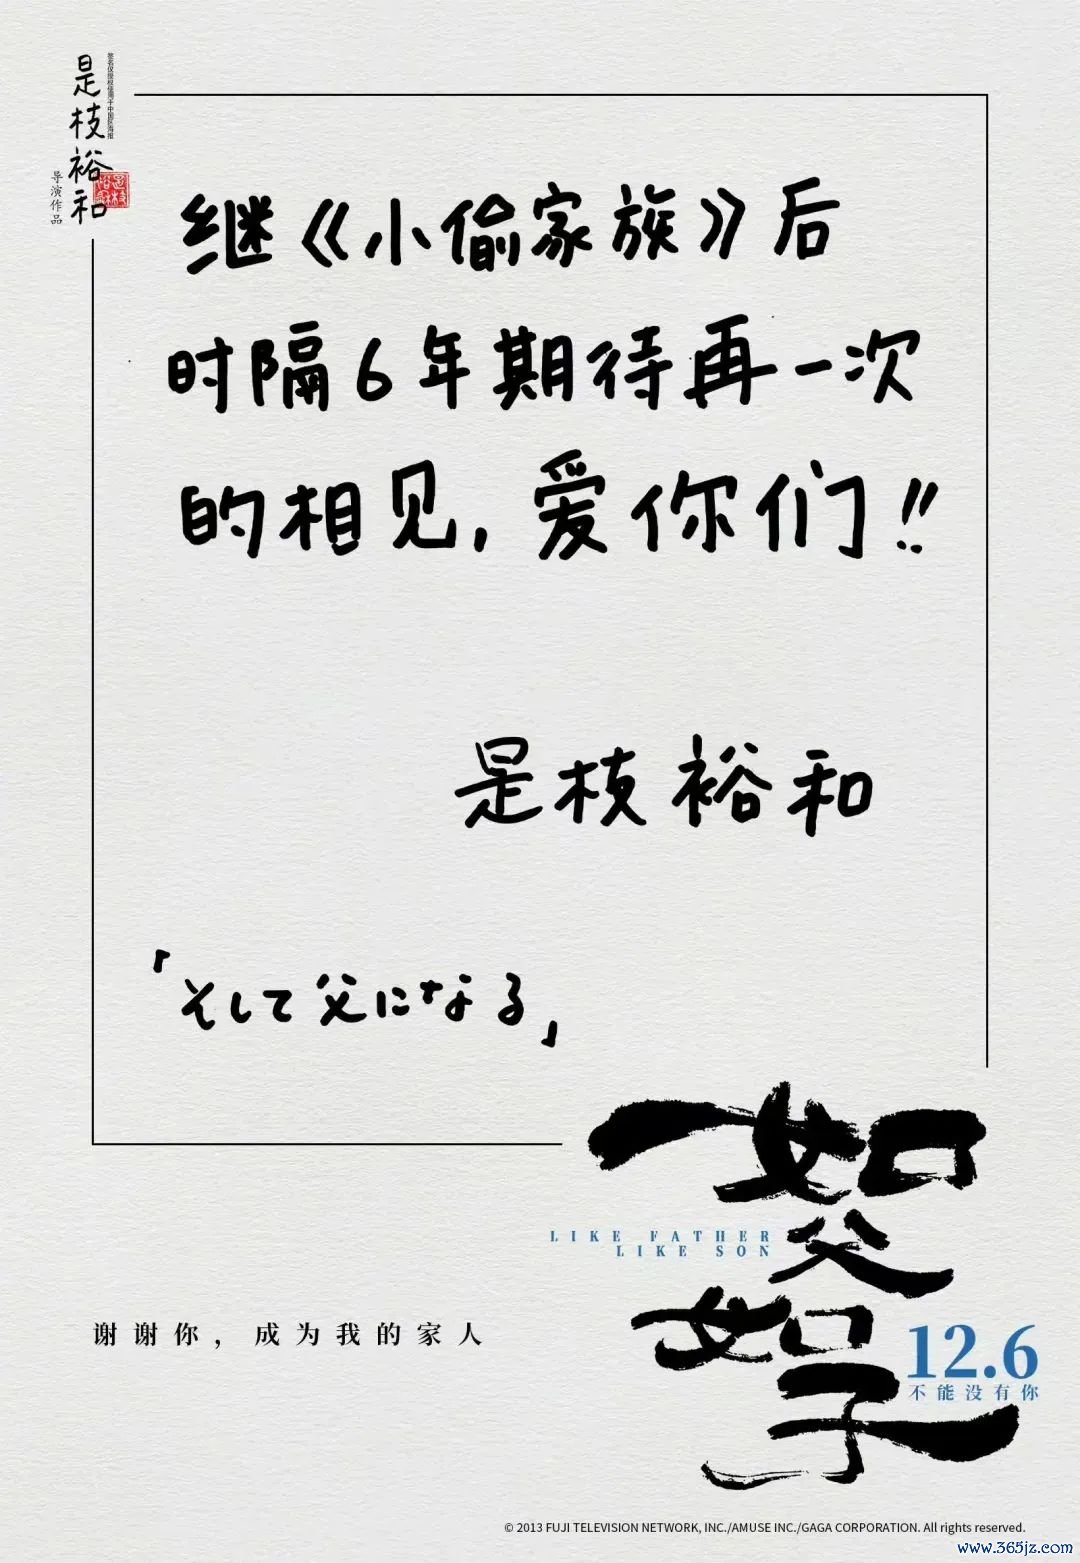 是枝裕和
签名仅授权使用于中国区海报
导演作品
继《小偷家族》后
时隔6年期待再一次
的相见，爱你们!!
是枝裕和
「そして父になる」
如父如子
LIKE FATHER
LIKE SON
谢谢你，成为我的家人
12.6
不能没有你
© 2013 FUJI TELEVISION NETWORK, INC./AMUSE INC./GAGA CORPORATION. All rights reserved.
www.365jz.com